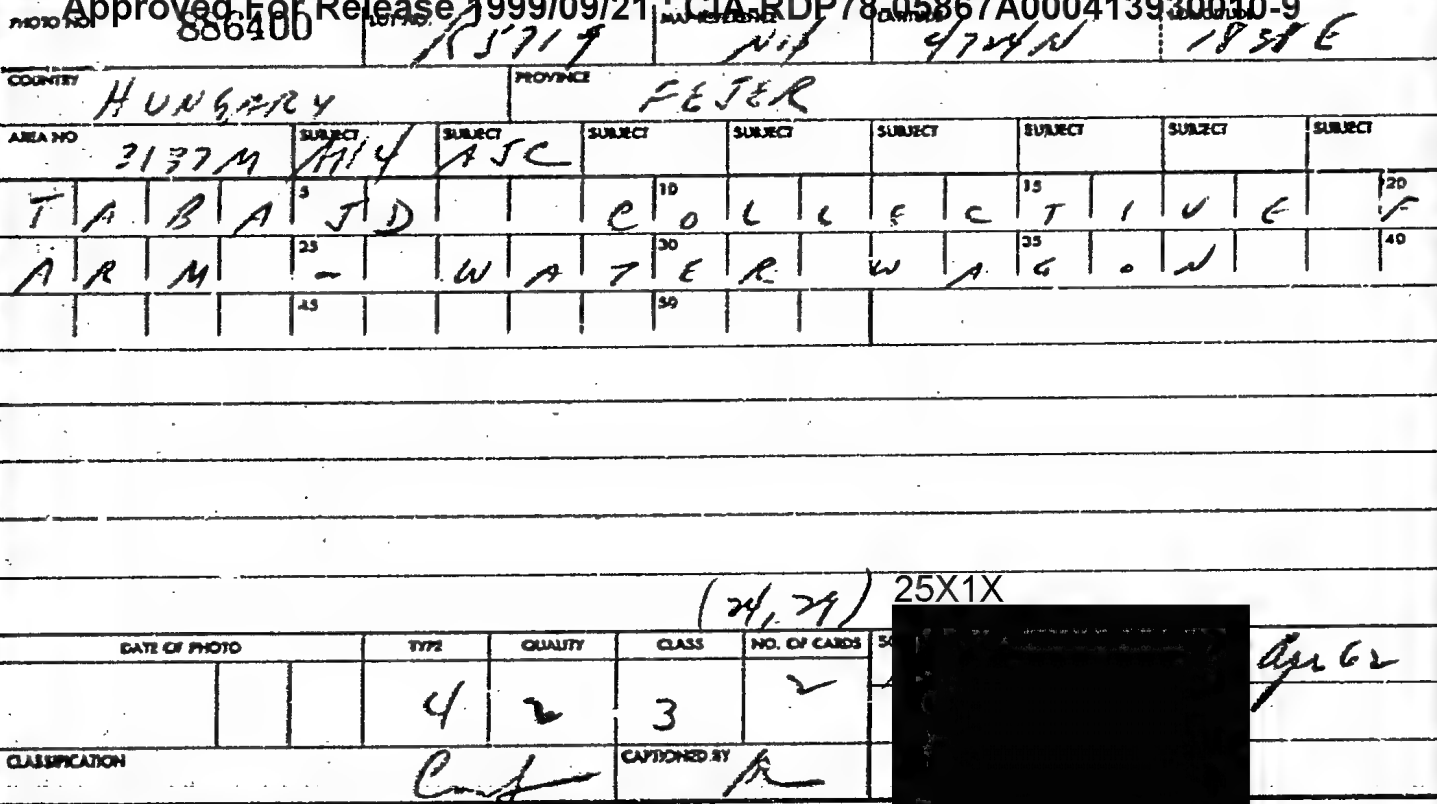 Approved For Release 1999/09/21 : CIA-RDP78-05867A000413930010-9
PHOTO NO. 886400 LOT NO. 155719 MAP REFERENCE LATITUDE 4724N 1838E
COUNTRY HUNGARY PROVINCE FEJER
AREA NO 3137M SUBJECT SUBJECT AJC SUBJECT SUBJECT SUBJECT SUBJECT SUBJECT SUBJECT
TABA 5 JD C 10 OLLEC 15 TIVE 20 F
ARM 25 - WAT 30 ER WA 35 GON 40
45 50
(24, 29) 25X1X
DATE OF PHOTO TYPE QUALITY CLASS NO. OF CARDS Apr 62
4 2 3 2
CLASSIFICATION Conf CAPTIONED BY